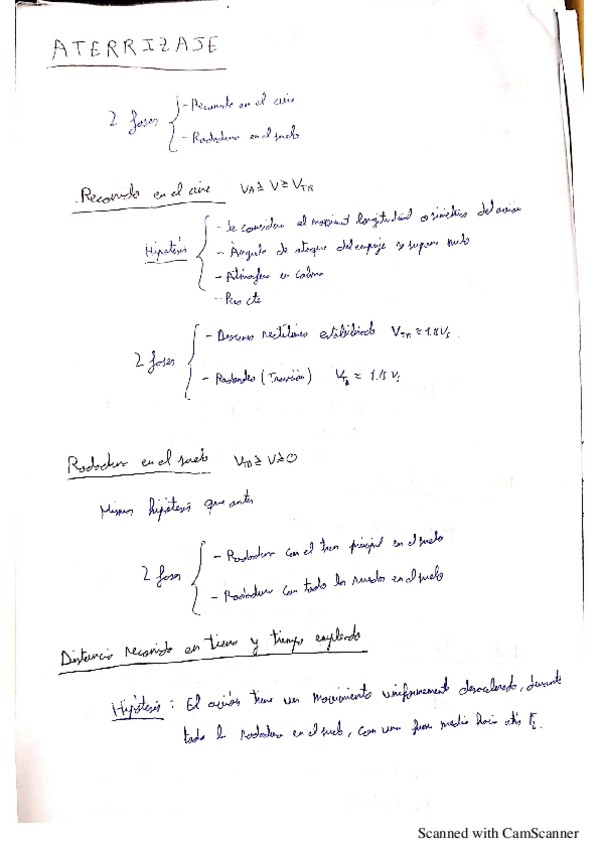 ATERRIZAJE
2 fases - Recorrido en el aire
- Rodadura en el suelo
Recorrido en el aire VA ≥ V ≥ VTD
Hipótesis - Se considera el longitudinal o simétrico del avión
- Ángulo de ataque del empuje se supone nulo
- Atmósfera en calma
- Peso cte
2 fases - Descenso rectilíneo estabilizado
- Redondeo (Transición)
Rodadura en el suelo VTD ≥ V ≥ 0
Mismas hipótesis que antes
2 fases - Rodadura con el tren principal en el suelo
- Rodadura con todas las ruedas en el suelo
Distancia recorrida en tierra y tiempo empleado
Hipótesis: El avión tiene un movimiento uniformemente desacelerado, durante
toda la rodadura en el suelo, con una fuerza media hacia atrás
Scanned with CamScanner